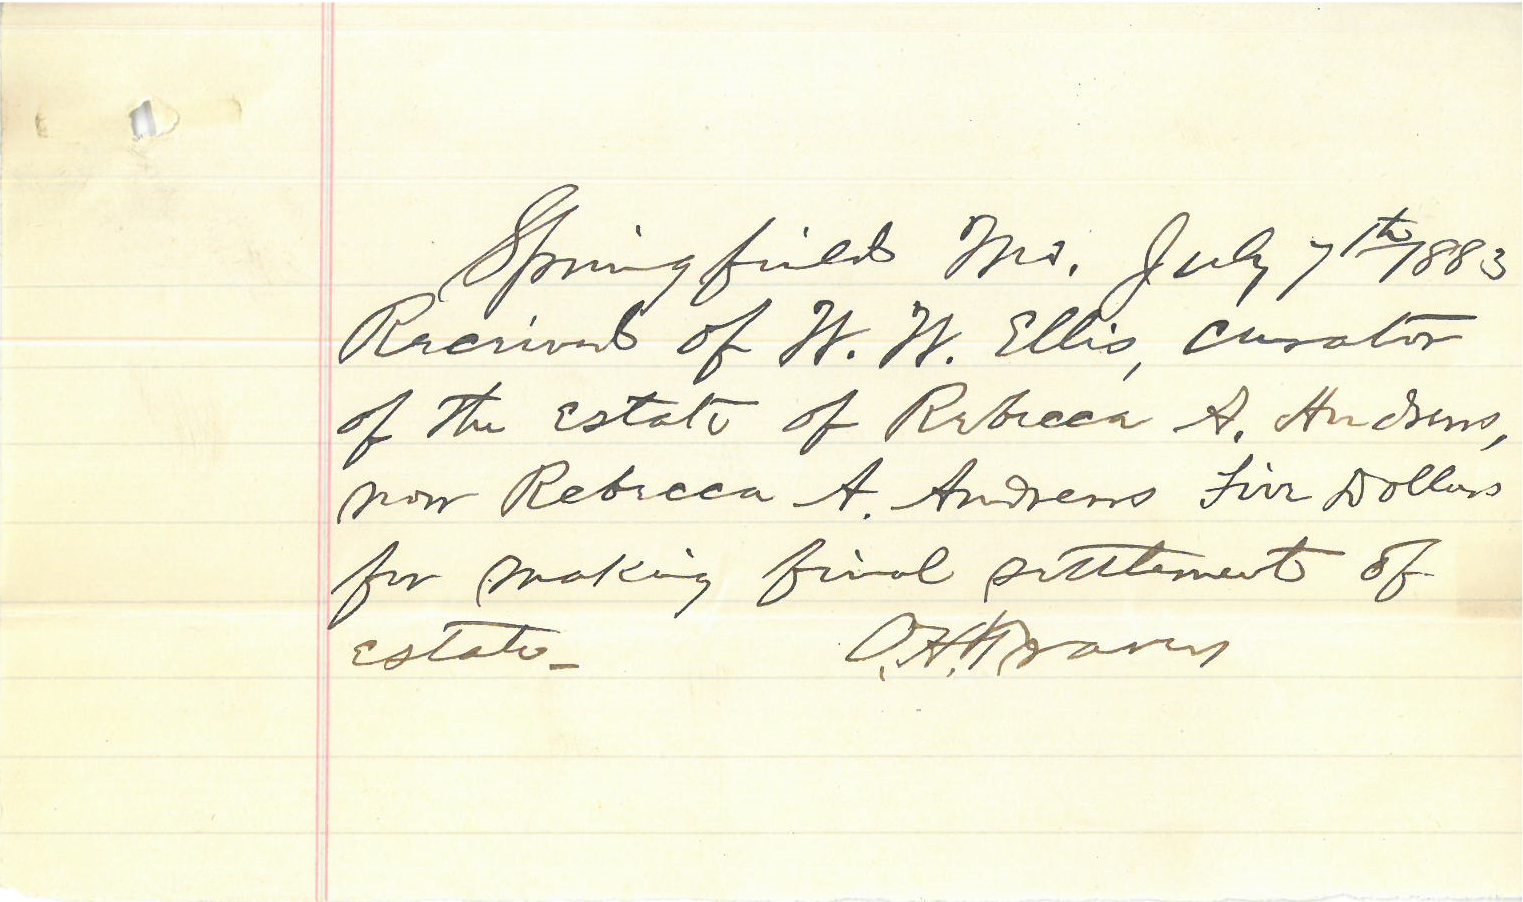 Springfield Mo. July 7th 1883
Received of W. W. Ellis, curator
of the estate of Rebecca A.
now Rebecca A. Andrews Five Dollars
for making final settlement of
estate_ O. H. Travers